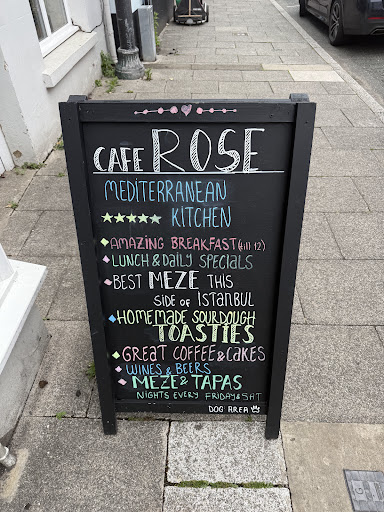 CAFE ROSE
MEDITERRANEAN
KITCHEN
AMAZING BREAKFAST (till 12)
LUNCH & DAILY SPECIALS
BEST MEZE THIS
SIDE OF ISTANBUL
HOMEMADE SOURDOUGH
TOASTIES
GREAT COFFEE & CAKES
WINES & BEERS
MEZE & TAPAS
NIGHTS EVERY FRIDAY & SAT
DOG AREA